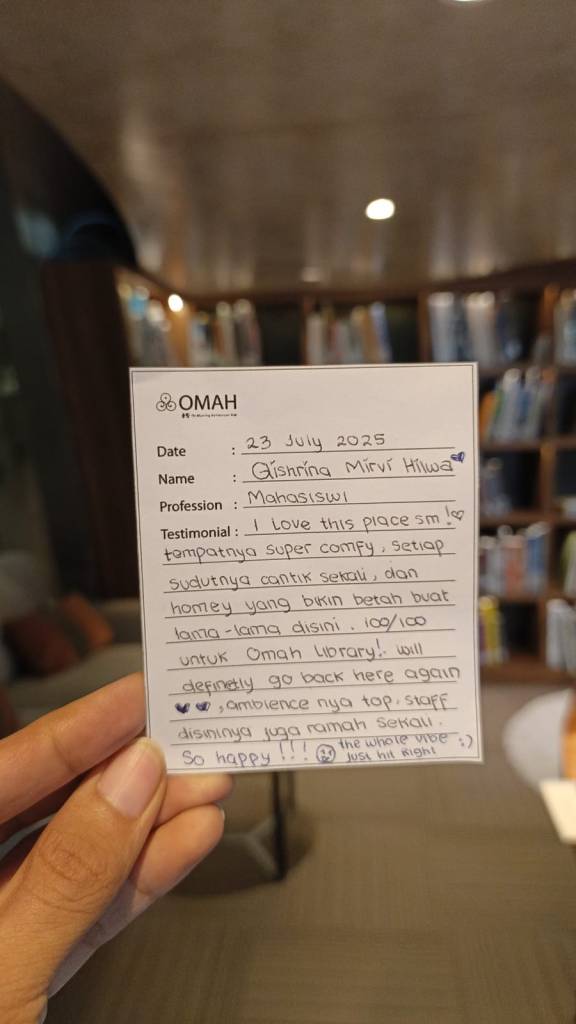 OMAH
Date : 23 July 2025
Name : Qishrina Mirvi Hilwa
Profession : Mahasiswi
Testimonial : I Love this place sm!
tempatnya super comfy, setiap
sudutnya cantik sekali, dan
homey yang bikin betah buat
lama-lama disini. 100/100
untuk Omah Library! will
definetly go back here again
, ambience nya top. staff
disininya juga ramah sekali.
So happy!!! the whole vibe :)
just hit right